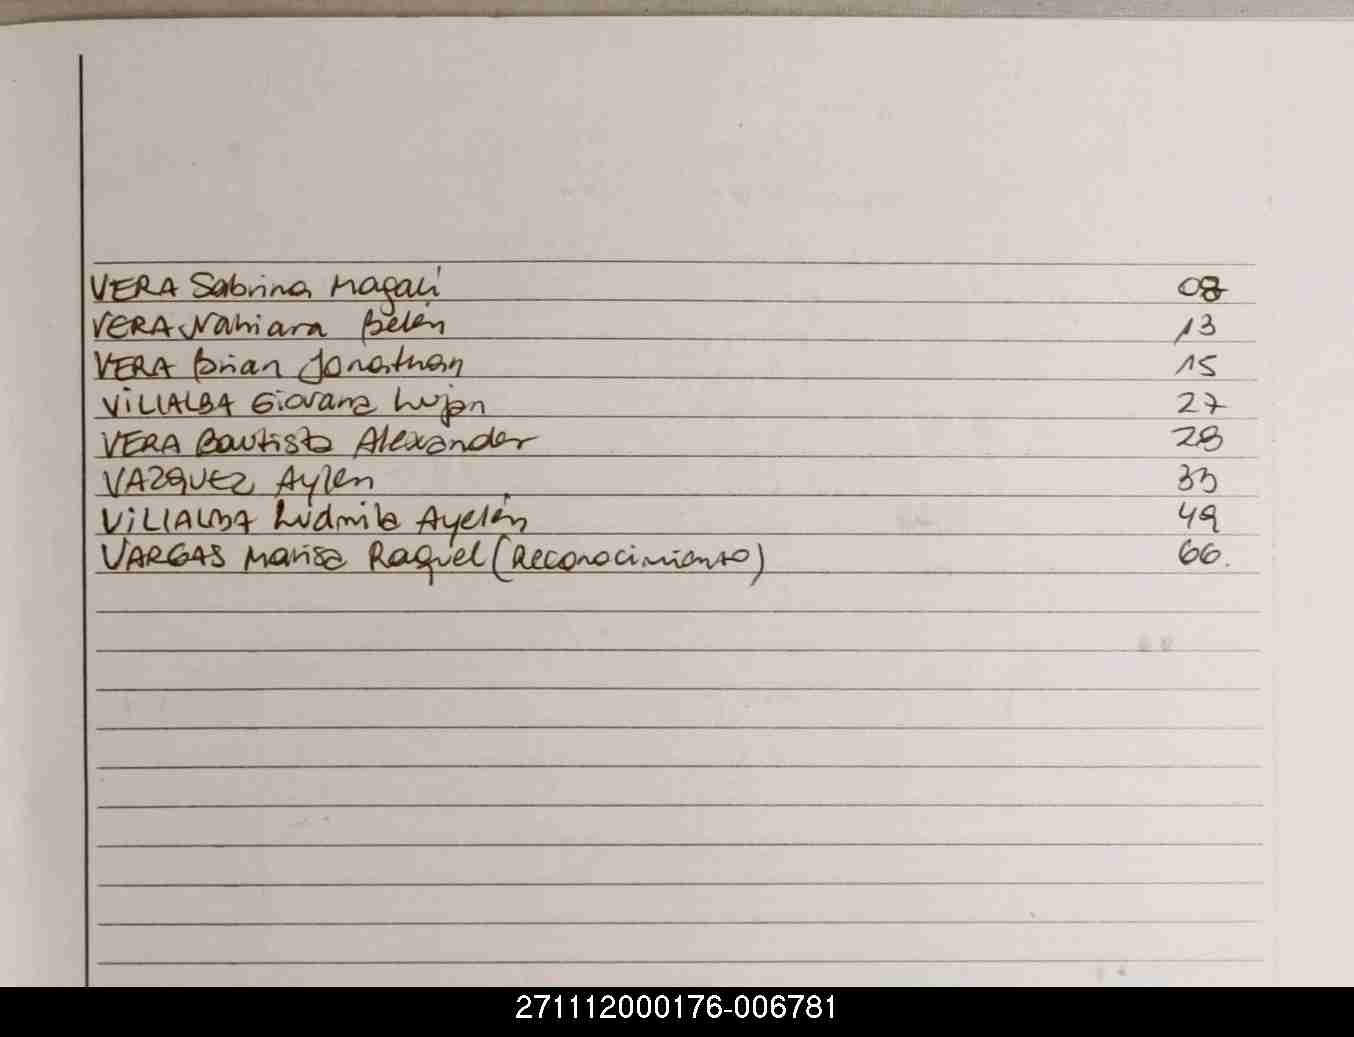 VERA Sabrina Magali 08
VERA Nahiara Belén 13
VERA Brian Jonathan 15
VILLALBA Giovana Lujan 27
VERA Bautista Alexander 28
VAZQUEZ Aylen 33
VILLALBA Ludmila Ayelén 49
VARGAS Marisa Raquel (Reconocimiento) 66.
271112000176-006781